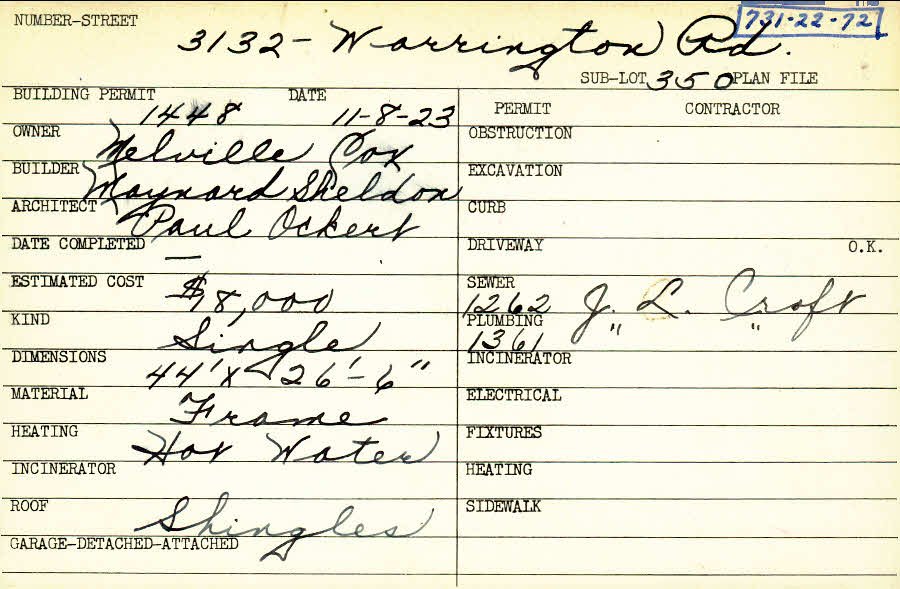 NUMBER-STREET
731-22-72
3132- Warrington Rd.
SUB-LOT 350 PLAN FILE
BUILDING PERMIT DATE
1448 11-8-23
OWNER Melville Cox
BUILDER Maynard Sheldon
ARCHITECT Paul Ockert
DATE COMPLETED —
ESTIMATED COST $18,000
KIND Single
DIMENSIONS 44' X 26'-6"
MATERIAL Frame
HEATING Hot Water
INCINERATOR
ROOF Shingles
GARAGE-DETACHED-ATTACHED
PERMIT CONTRACTOR
OBSTRUCTION
EXCAVATION
CURB
DRIVEWAY O.K.
SEWER
1262 J. L. Croft
PLUMBING
1361 " "
INCINERATOR
ELECTRICAL
FIXTURES
HEATING
SIDEWALK